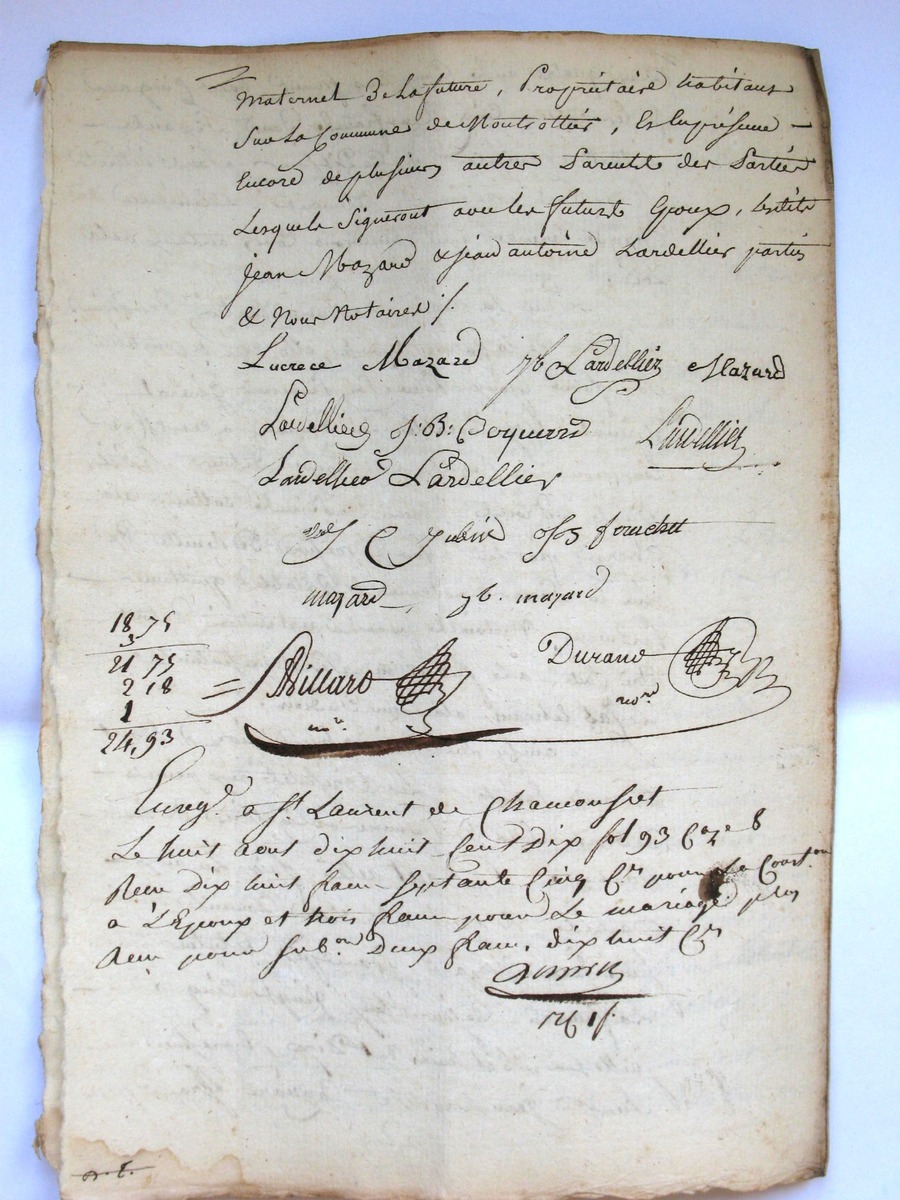 maternel De La future, Propriétaire habitant
Sur La Commune de Montrottier, Et En présence
Encore de plusieurs autres Parents des Parties
Lesquels Signeront avec les futurs Epoux, lesdits
jean Mazard & jean antoine Lardellier parties
& Nous Notaires ./.
Lucrece Mazard jb Lardellier Mazard
Lardellier j: B: Coquard Lardellier
Lardellier Lardellier
jubin fouchet
mazard jb. mazard
18 75
3
21 75
2 18
1
24,93
Billard
Durand
nore
Enregé a St Laurent de Chamousset
Le huit aout dix huit Cent Dix fol 93 Cze 8
Recu Dix huit fran septante Cinq Cs pour Le
a L'Epoux et trois fran pour Le mariage plus
Recu pour subon Deux fran. dix huit Cs